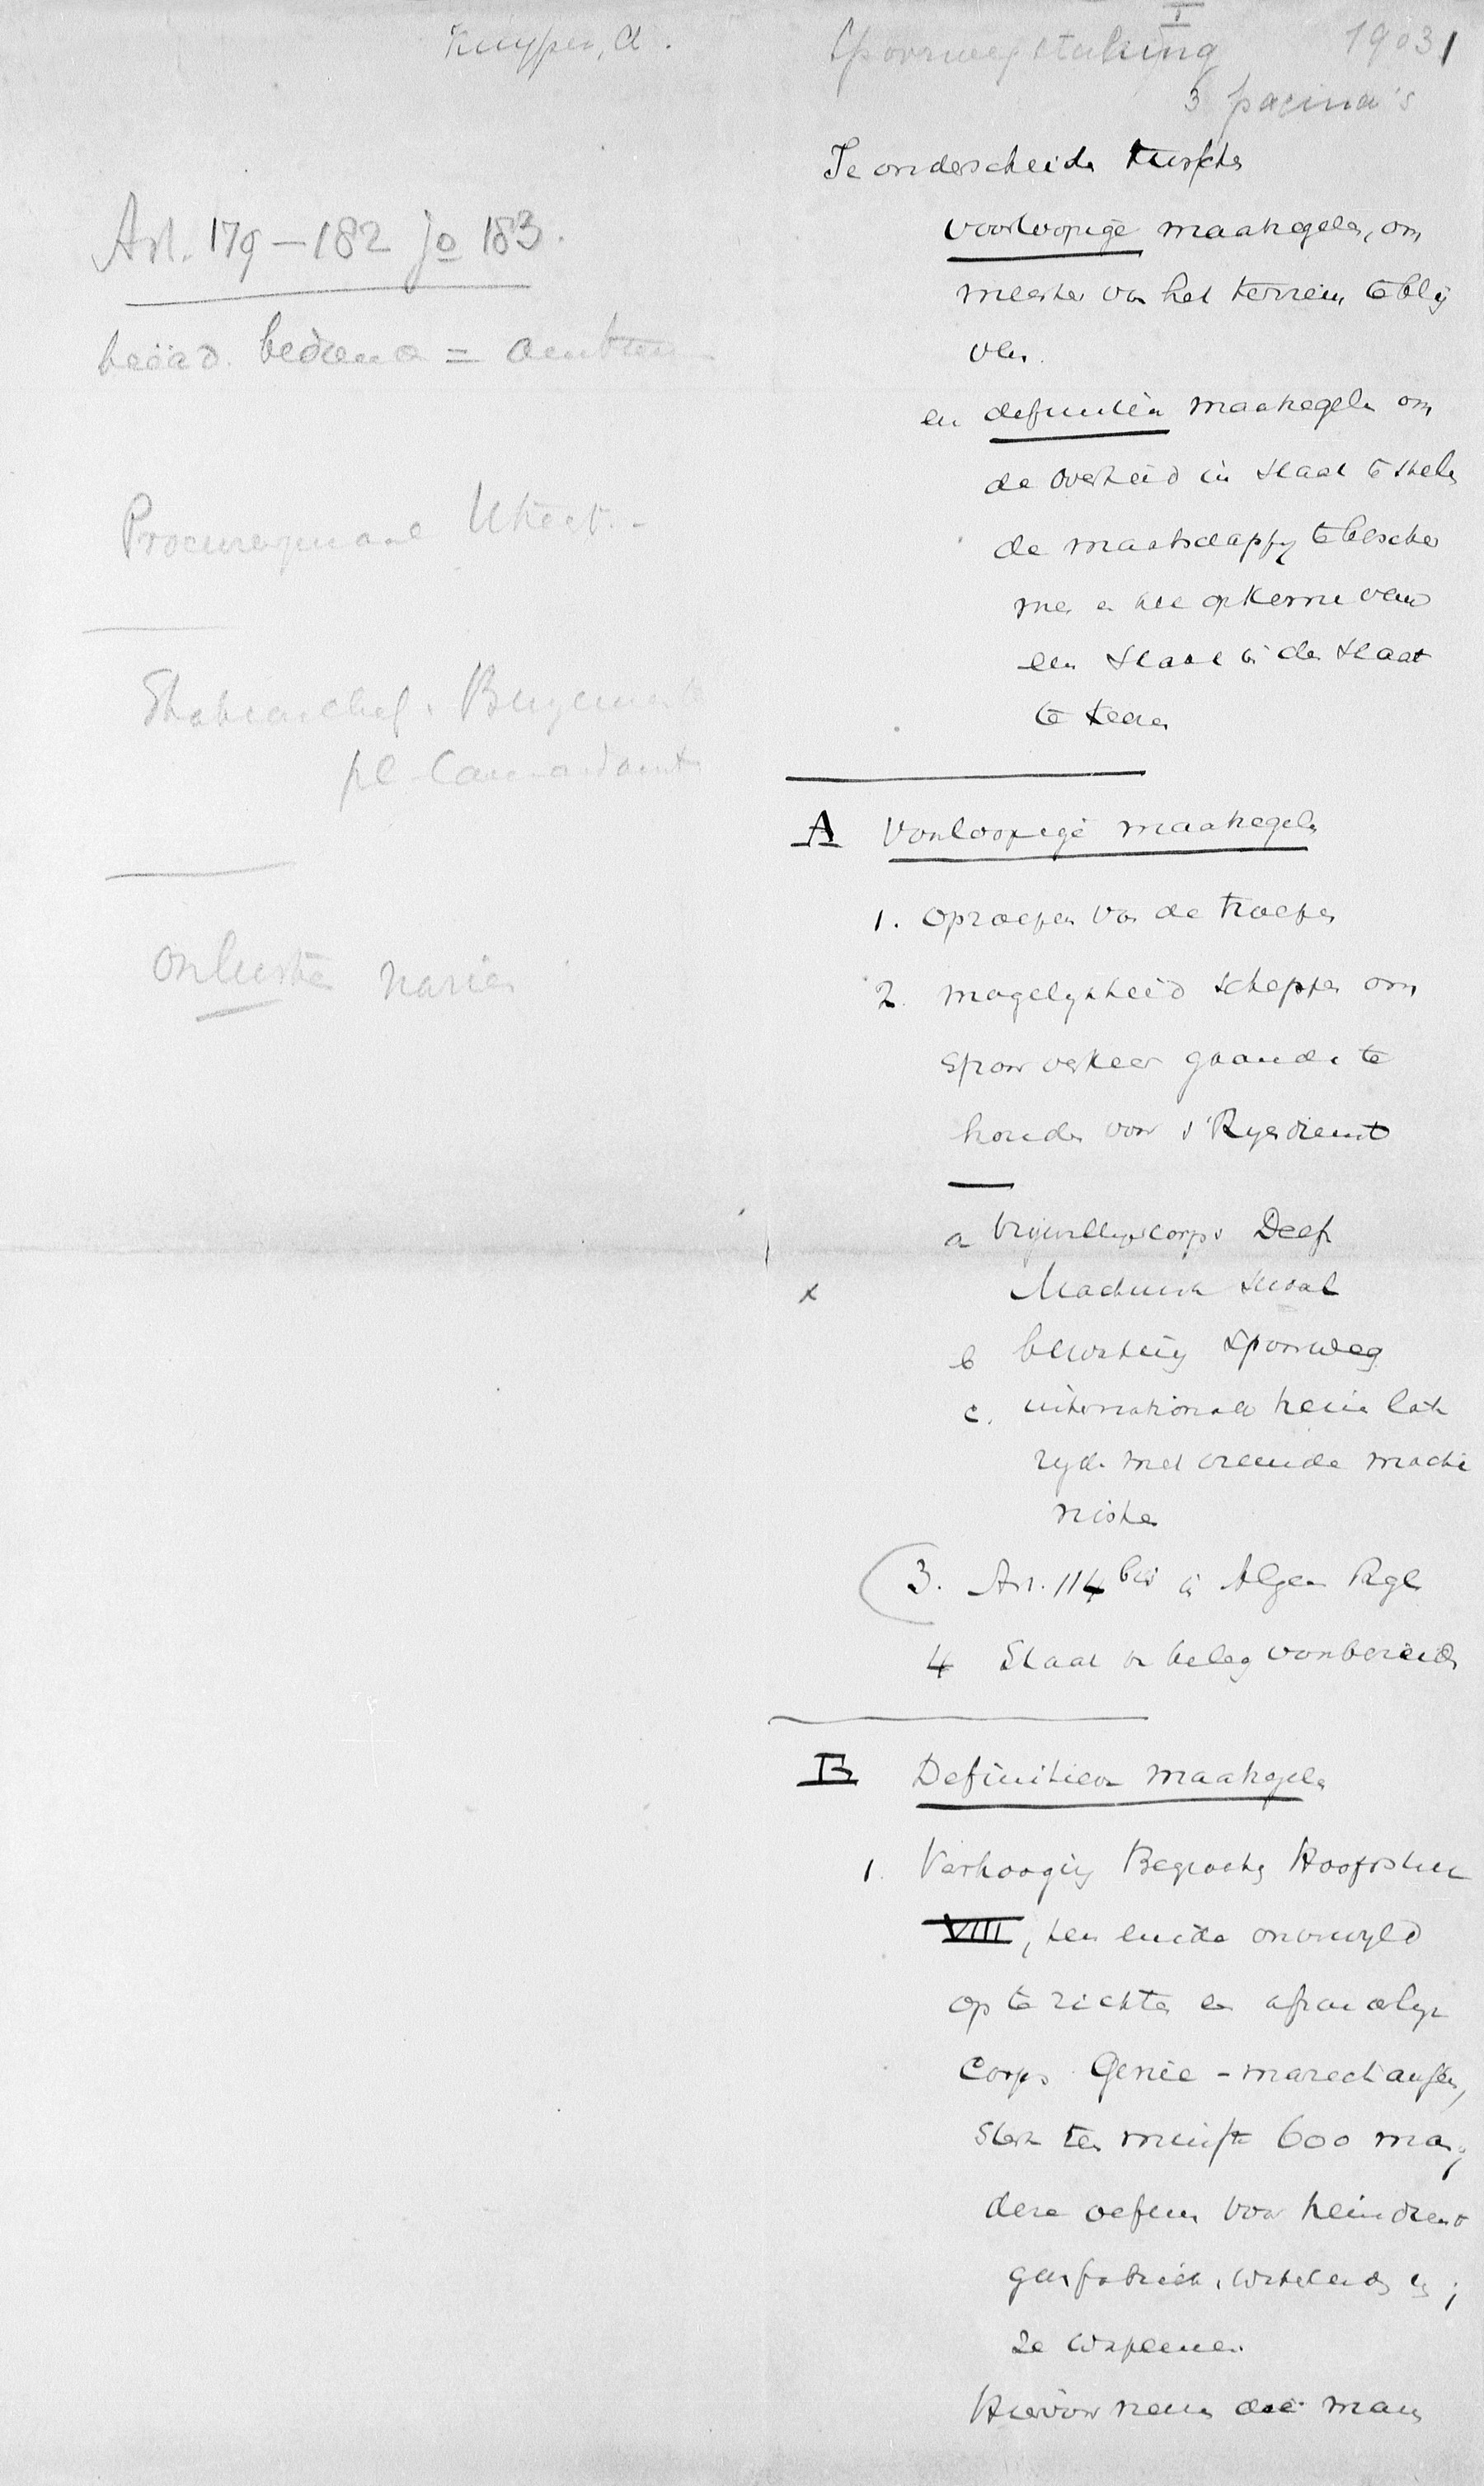 Kuyper, A.
Spoorwegstaking I 1903
3 pagina's
Art. 179-182 jo 183.
beëad. = ambten
Procureur
Stationchef. Burgemeester
pl. Commandant
onlusten
Te onderscheiden tusschen
voorloopige maatregelen, om
meester van het terrein te blij
ven.
en definitieve maatregelen om
de overheid in staat te stellen
de maatschappij te bescher
men en het opkomen van
een staat in den staat
te keeren
A Voorloopige maatregelen
1. Oproepen van de troepen
2. mogelijkheid scheppen om
spoorverkeer gaande te
houden voor 's Rijksdienst
a vrijwilligerscorps Delft
x Machinisten school
b bewaking spoorweg
c. internationale treinen laten
rijden met vreemde machi
nisten
3. Art. 114 bis in Algem Regl
4 Staat van beleg voorbereiden
B Definitieve maatregelen
1. Verhooging Begrooting Hoofdstuk
VIII, ten einde onverwijld
op te richten een afzonderlijk
Corps Genie-marechaussee,
sterk ten minste 600 man,
deze oefenen voor treindienst
gasfabriek, waterleiding ;
ze wapenen.
Hiervoor nemen die man